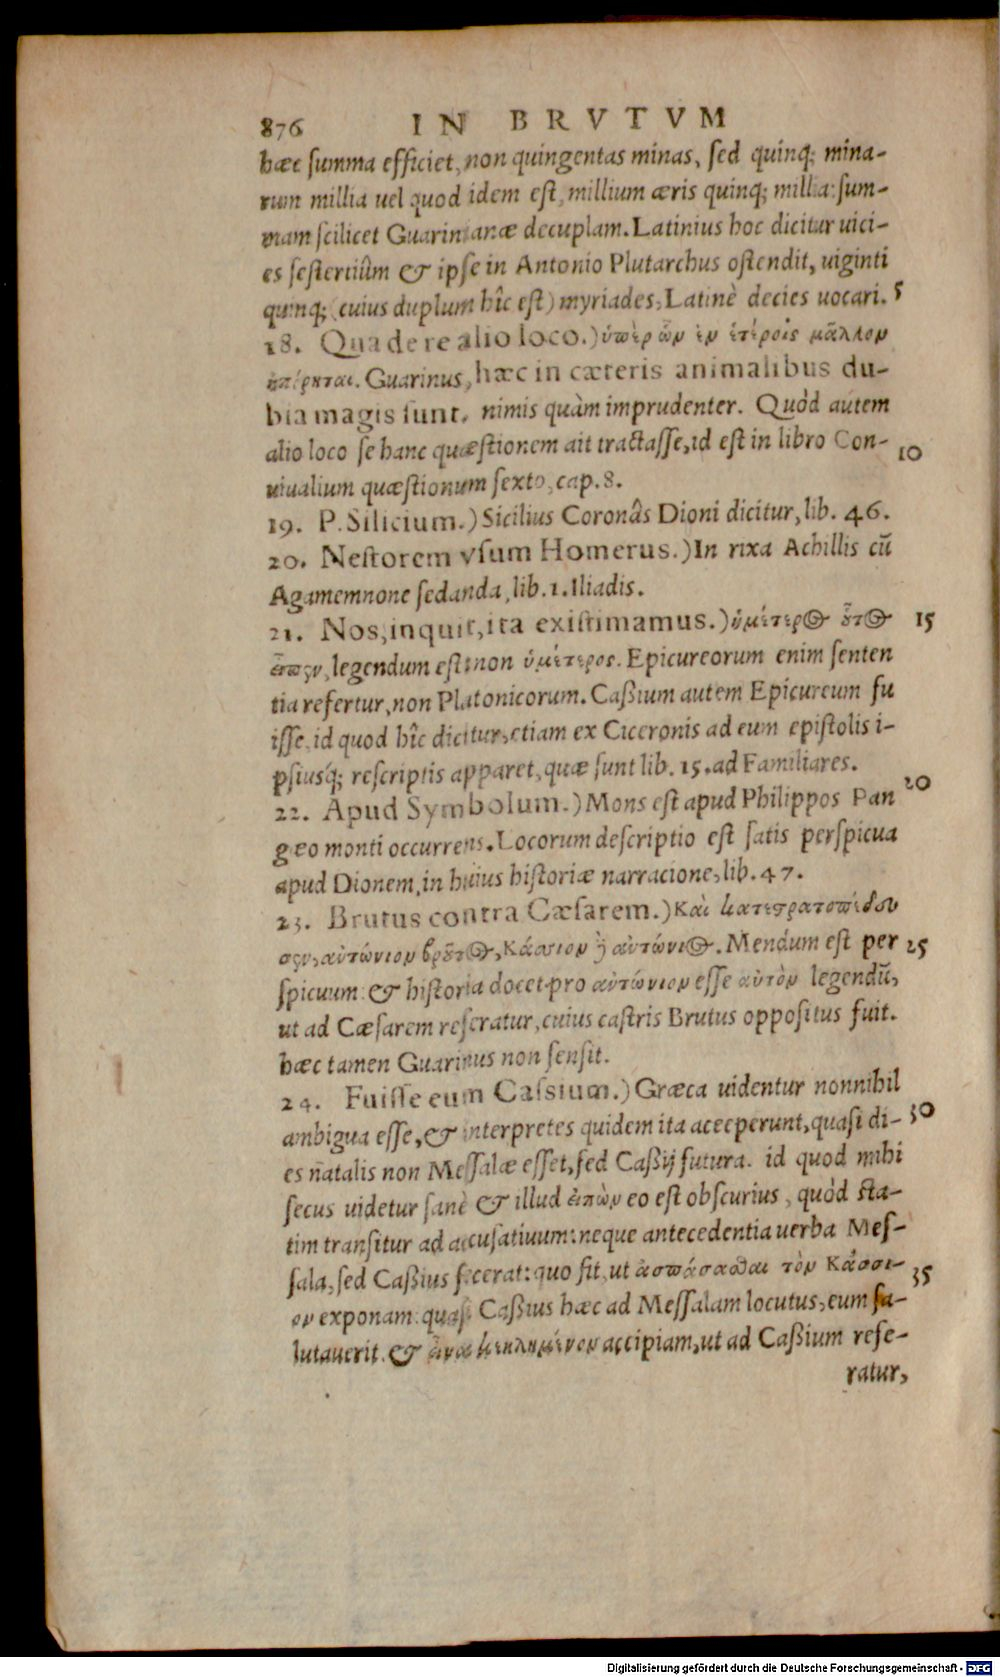 876 IN BRVTVM
hæc summa efficiet, non quingentas minas, sed quinq; mina-
rum millia uel quod idem est, millium æris quinq; millia: sum-
mam scilicet Guarinianæ decuplam. Latinius hoc dicitur uici-
es sestertiûm & ipse in Antonio Plutarchus ostendit, uiginti
quinq; (cuius duplum hîc est) myriades, Latinè decies uocari. 5
18. Qua de re alio loco.) ὑπὲρ ὧν ἐν ἑτέροις μᾶλλον
ἠπόρηται. Guarinus, hæc in cæteris animalibus du-
bia magis sunt, nimis quàm imprudenter. Quòd autem
alio loco se hanc quæstionem ait tractasse, id est in libro Con- 10
uiualium quæstionum sexto, cap. 8.
19. P. Silicium.) Sicilius Coronâs Dioni dicitur, lib. 46.
20. Nestorem vsum Homerus.) In rixa Achillis cū
Agamemnone sedanda, lib. 1. Iliadis.
21. Nos, inquit, ita existimamus.) ὑμέτερος οὗτος 15
legendum est: non ὑμέτερος. Epicureorum enim senten
tia refertur, non Platonicorum. Caßium autem Epicureum fu
isse, id quod hîc dicitur, etiam ex Ciceronis ad eum epistolis i-
psiusq́; rescriptis apparet, quæ sunt lib. 15. ad Familiares.
22. Apud Symbolum.) Mons est apud Philippos Pan 20
gæo monti occurrens. Locorum descriptio est satis perspicua
apud Dionem, in huius historiæ narracione, lib. 47.
23. Brutus contra Cæsarem.) Καὶ κατεστρατοπέδευ
σεν, αὐτώνιον βροῦτος, Κάσσιον δὲ αὐτώνιος. Mendum est per 25
spicuum: & historia docet pro αὐτώνιον esse αὐτὸν legendū,
ut ad Cæsarem referatur, cuius castris Brutus oppositus fuit.
hæc tamen Guarinus non sensit.
24. Fuisse eum Cassium.) Græca uidentur nonnihil
ambigua esse, & interpretes quidem ita acceperunt, quasi di- 30
es natalis non Messalæ esset, sed Caßij futura. id quod mihi
secus uidetur sanè & illud εἰπὼν eo est obscurius, quòd sta-
tim transitur ad accusatiuum: neque antecedentia uerba Mes-
sala, sed Caßius fecerat: quo fit, ut ἀσπάσασθαι τὸν Κάσσι- 35
ον exponam: quasi Caßius hæc ad Messalam locutus, eum sa-
lutauerit. & κεκλημένον accipiam, ut ad Caßium refe-
ratur,
Digitalisierung gefördert durch die Deutsche Forschungsgemeinschaft - DFG